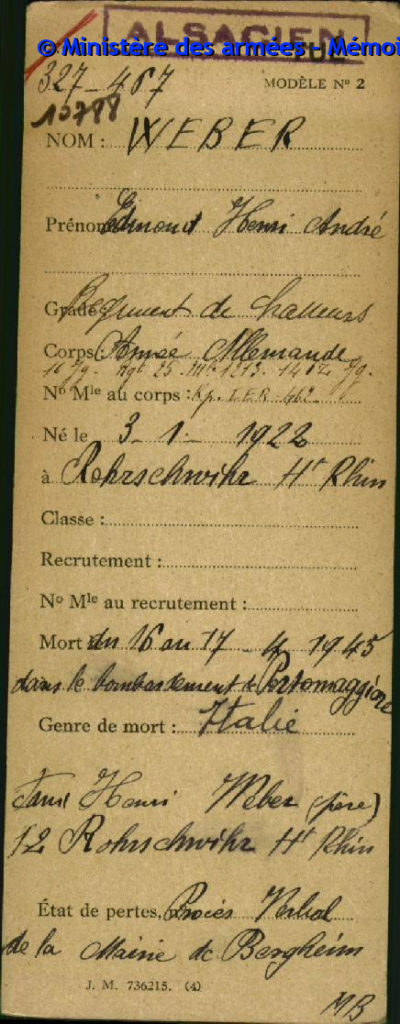 ALSACIEN
© Ministère des armées - Mémoi
327-467
MODÈLE Nº 2
10788
NOM : WEBER
Prénoms Edmond Henri André
Grade Regiment de Chasseurs
Corps Armée Allemande
Nº Mle au corps :
Né le 3-1-1922
à Rohrschwihr Ht Rhin
Classe :
Recrutement :
Nº Mle au recrutement :
Mort du 16 au 17-4 1945
dans le bombardement de Portomaggiore
Genre de mort : Italie
Henri Weber (père)
12 Rohrschwihr Ht Rhin
État de pertes, Procés Verbal
de la Mairie de Bergheim
J. M. 736215. (4)
MB